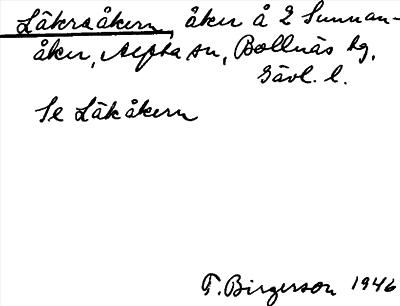 Läkraåkern, åker å 2 Sunnan-
åker, Alfta sn, Bollnäs tg,
Gävl. l.
Se Läkåkern
F. Birgerson 1946